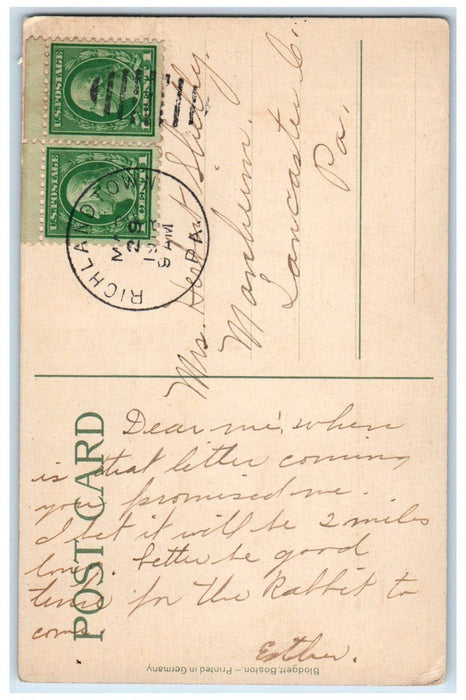 U.S. POSTAGE
1 CENT 1
U.S. POSTAGE
1 CENT
RICHLANDTOWN
MAR
29
9 AM
PA.
Mrs. Herbert
Manheim.
Lancaster Co.
Pa.
POST CARD
Dear me, when
is that letter coming
you promised me.
I bet it will be 2 miles
long. better be good
time for the Rabbit to
come
Esther.
Blodgett, Boston.—Printed in Germany.